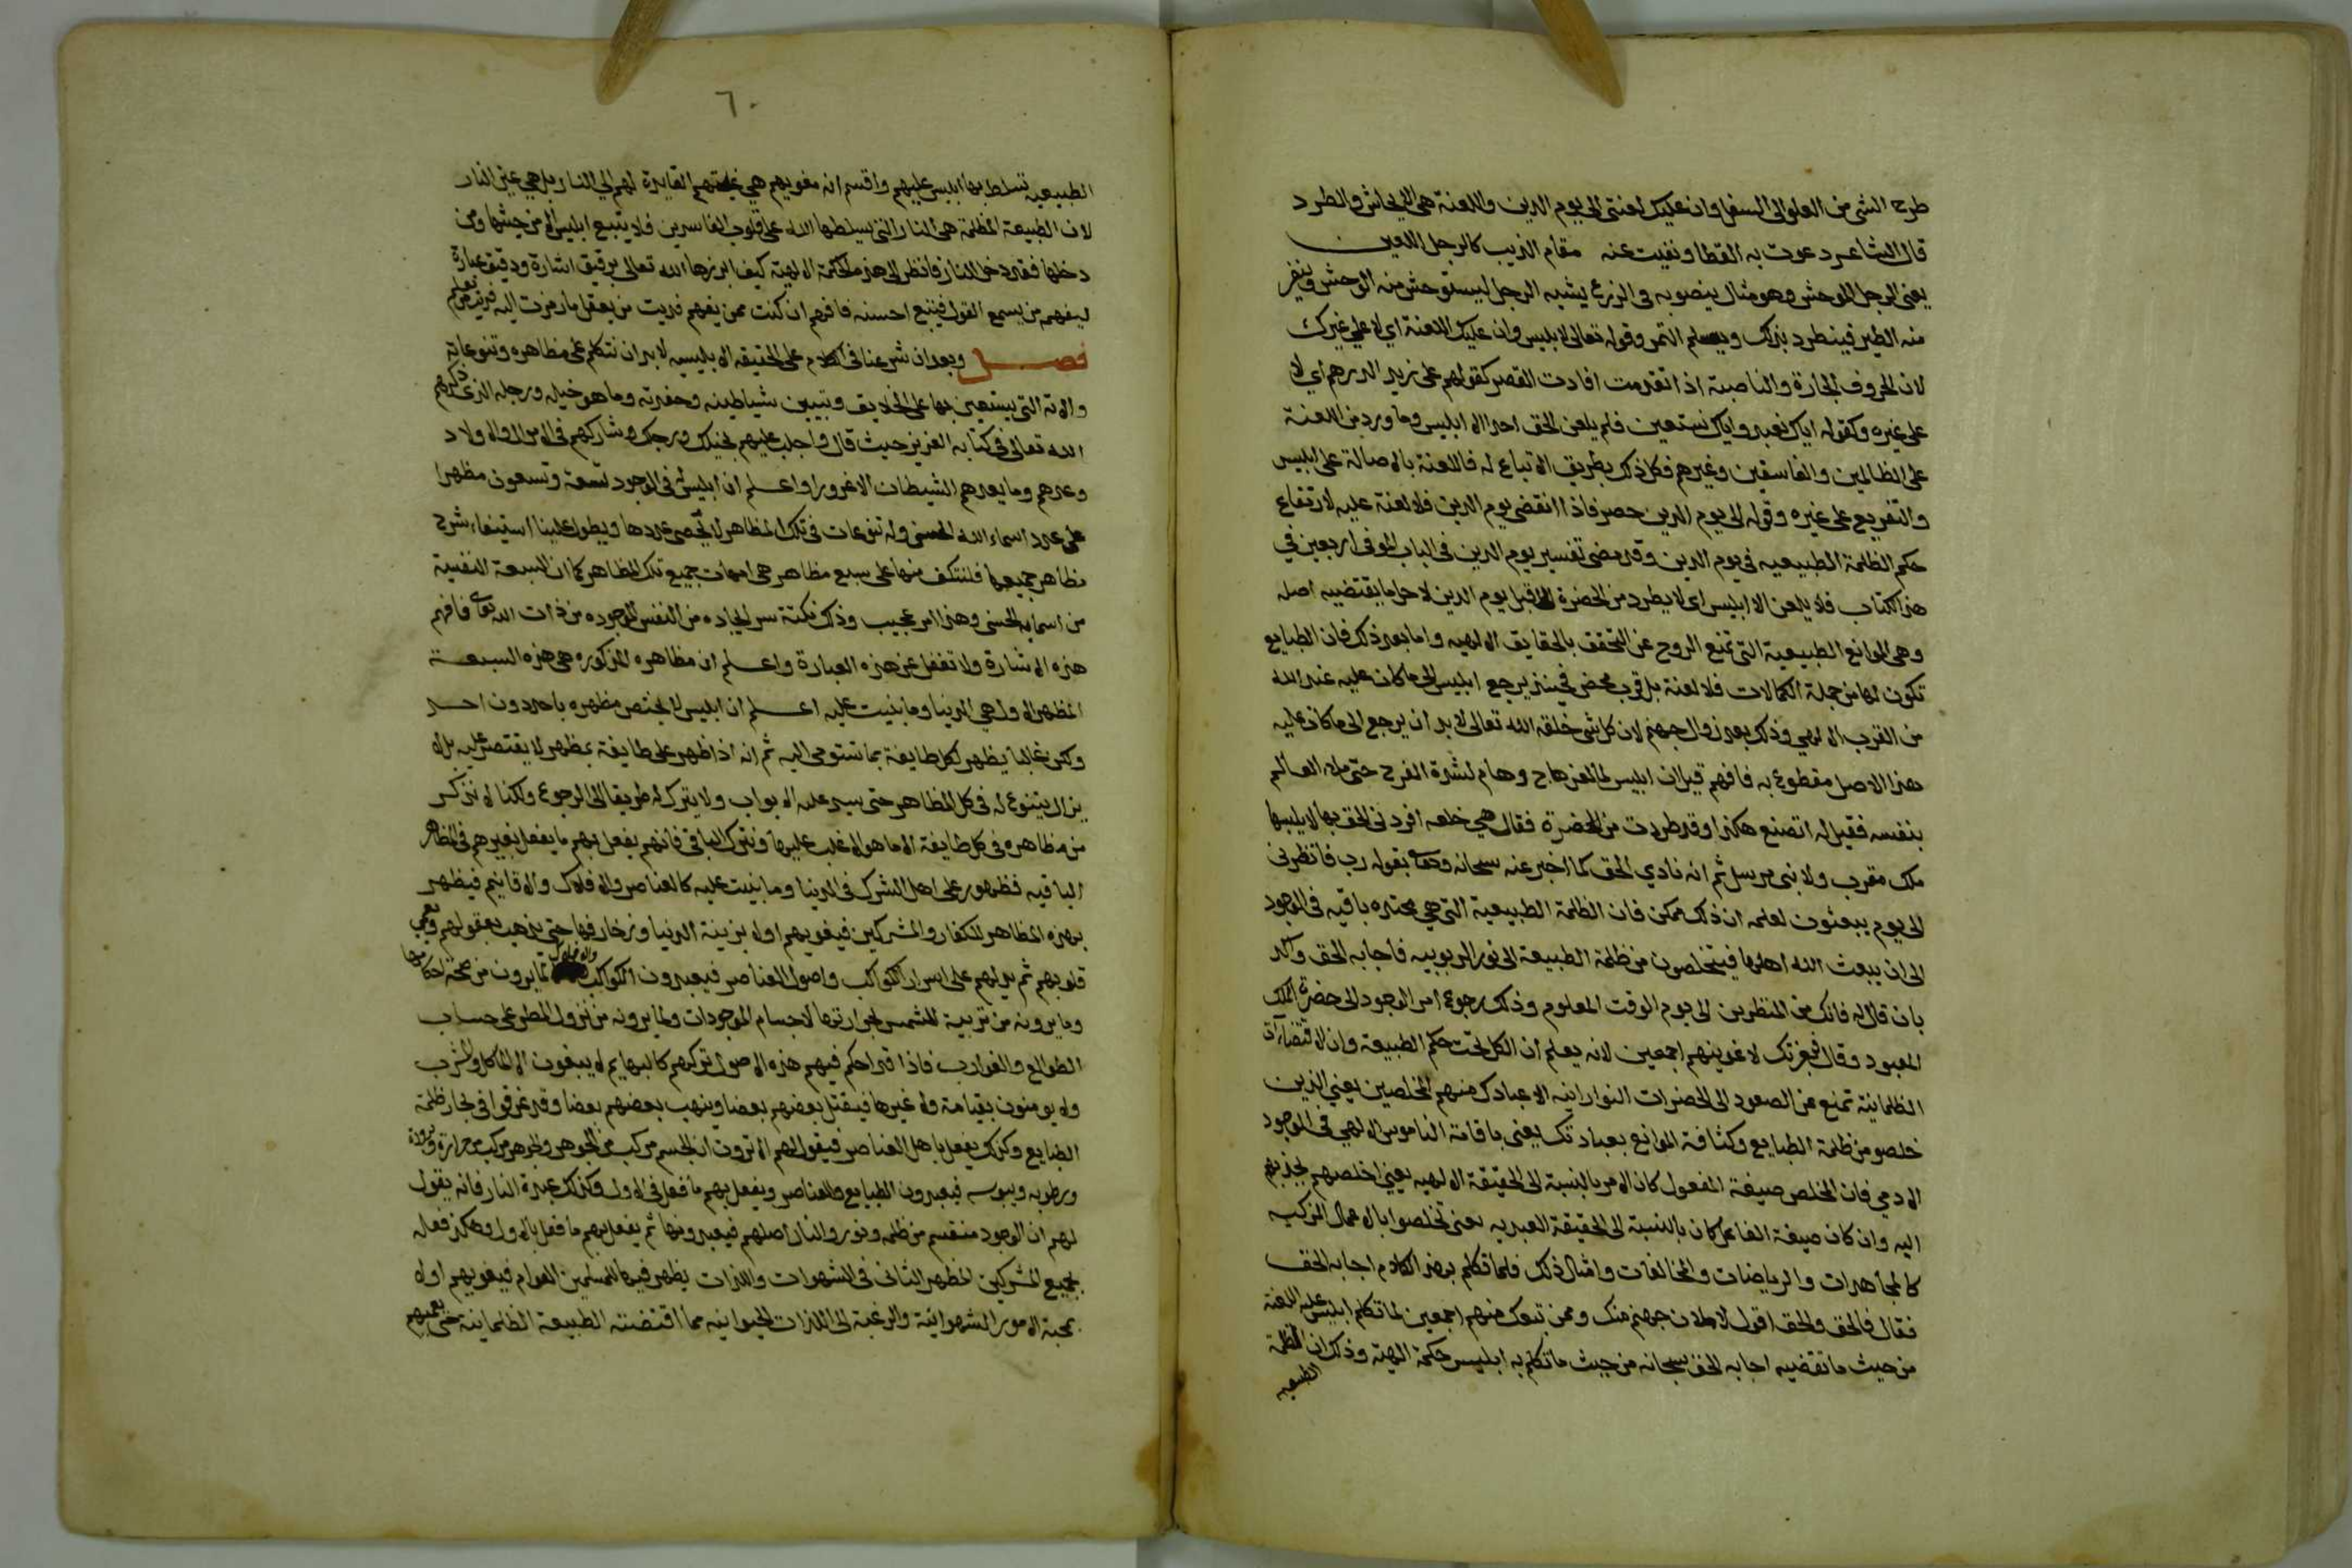 طرح الشي من العلو الى السفل وان عليك لعنتي الى يوم الدين واللعنة هي الايحاش والطرد
قال الشاعر دعوت به القطا ونفيت عنه مقام الذيب كالرجل اللعين
يعني الرجل الموحش وهو مثال ينصوبه في الزرع يشبه الرجل ليستوحش منه الوحش وينفر
منه الطير فينطرد بذلك ويسلم الثمر وقوله تعالى لابليس وان عليك اللعنة اي لا على غيرك
لان الحروف الجارة والناصبة اذا تقدمت افادت القصر كقولهم على زيد الدرهم اي لا
على غيره وكقوله اياك نعبد واياك نستعين فلم يلعن الحق احدا الا ابليس وما ورد من اللعنة
على الظالمين والفاسقين وغيرهم فكل ذلك بطريق الاتباع له فاللعنة بالاصالة على ابليس
والتفريع على غيره وقوله الى يوم الدين حصر فاذا انقضى يوم الدين فلا لعنة عليه لارتفاع
حكم الظلمة الطبيعيه في يوم الدين وقد مضى تفسير يوم الدين في الباب الموفى اربعين في
هذا الكتاب فلا يلعن الا ابليس اي لا يطرد من الحضرة الا قبل يوم الدين لاجل ما يقتضيه اصله
وهي الموانع الطبيعية التي تمنع الروح عن التحقق بالحقايق الالهيه واما بعد ذلك فان الطبايع
تكون لها من جملة الكمالات فلا لعنة بل قرب محض فحينئذ يرجع ابليس الى ما كان عليه عند الله
من القرب الالهي وذلك بعد زوال جهنم لان كل شي خلقه الله تعالى لابد ان يرجع الى ما كان عليه
هذا الاصل مقطوع به فافهم قيل ان ابليس لما لعن هاج وهام لشدة الفرح حتى ملا العالم
بنفسه فقيل له اتصنع هكذا وقد طردت من الحضرة فقال هي خلعه افردني الحق بها لا يلبسها
ملك مقرب ولا نبي مرسل ثم انه نادي الحق كما اخبر عنه سبحانه وتعالى بقوله رب فانظرني
الى يوم يبعثون لعلمه ان ذلك ممكن فان الظلمة الطبيعية التي هي محتده باقيه في الوجود
الى ان يبعث الله اهلها فيتخلصون من ظلمة الطبيعة الى نور الربوبيه فاجابه الحق واكد
بان قال له فانك من المنظرين الى يوم الوقت المعلوم وذلك رجوع امر الوجود الى حضرة الملك
المعبود وقال فبعزتك لاغوينهم اجمعين لانه يعلم ان الكل تحت حكم الطبيعة وان الاقتضاات
الظلمانية تمنع عن الصعود الى الحضرات النوارانيه الا عبادك منهم المخلصين يعني الذين
خلصو من ظلمة الطبايع وكثافة الموانع بعبادتك يعني باقامة الناموس الالهي في الوجود
الادمي فان المخلص صيغة المفعول كان الامر بالنسبة الى الحقيقة الالهيه يعني اخلصهم بجذبهم
اليه وان كان صيغة الفاعل كان بالنسبة الى الحقيقة العبديه يعنى تخلصوا بالاعمال الزكيه
كالمجاهدات والرياضات والمخالفات وامثال ذلك فلما تكلم بهذا الكلام اجابه الحق
فقال فالحق والحق اقول لاملان جهنم منك وممن تبعك منهم اجمعين لما تكلم ابليس عليه اللعنه
من حيث ما تقضيه اجابه الحق سبحانه من حيث ما تكلم به ابليس حكمة الهية وذلك ان الظلمة
الطبيعيه
٦٠
الطبيعيه تسلط بها ابليس عليهم واقسم انه مغويهم هي القايدة لهم الى النار بل هي عين النار
لان الطبيعة المظلمة هي النار التي يسلطها الله على قلوب المفسدين فلا يتبع ابليس الا من حيثها ومن
دخلها فقد دخل النار فانظر الى هذه الحكمة الالهية كيف ابرزها الله تعالى برقيق اشارة ودقيق عبارة
ليفهم من يسمع القول فيتبع احسنه فافهم ان كنت ممن يفهم فديت من يعقل ما رمزت اليه فديت من يعلم
فصل وبعد ان شرعنا في الكلام على الحقيقه الابليسيه لابد ان نتكلم على مظاهره وتنوعاته
والاته التي يستعين بها على الخلايق وتبيين شياطينه وحفدته وما هو خيله ورجله الذي ذكرهم
الله تعالى في كتابه العزيز حيث قال واجلب عليهم بخيلك ورجلك وشاركهم في الاموال والاولاد
وعدهم وما يعدهم الشيطان الا غرورا واعلم ان ابليس له في الوجود تسعة وتسعون مظهرا
على عدد اسماء الله الحسنى وله تنوعات في تلك المظاهر لا يحصى عددها ويطول علينا استيفاء شرح
مظاهر جميعها فلنكتف منها على سبع مظاهر هي امهات جميع تلك المظاهر كما ان السبعة النفسية
من اسمايه الحسنى وهذا امر عجيب وذلك نكتة سر ايجاده من النفس الموجوده من ذات الله تعالى فافهم
هذه الاشارة ولا تغفل عن هذه العبارة واعلم ان مظاهره المذكوره هي هذه السبعة
المظهر الاول هي الدنيا وما بنيت عليه اعلم ان ابليس لا يختص مظهره باحد دون احد
ولكن غالبا يظهر لكل طايفة بما ستومى اليه ثم انه اذا ظهر على طايفة بمظهر لا يقتصر عليه بل لا
يزال يتنوع له في كل المظاهر حتى يسد عليه الابواب ولا يترك له طريقا الى الرجوع ولكنا لا نذكر
من مظاهره في كل طايفة الا ما هو الاغلب عليها ونترك الباقي فانهم يفعل بهم ما يفعل بغيرهم في المظاهر
الباقيه فظهوره على اهل الشرك في الدنيا وما بنيت عليه كالعناصر والافلاك والاقاليم فيظهر
بهذه المظاهر للكفار والمشركين فيغويهم اولا بزينة الدنيا وزخارفها حتى يذهب بعقولهم ويعمى
قلوبهم ثم يدلهم على اسرار الكواكب واصول العناصر فيعبدون الكواكب والافلاك لما يرون من صحة احكامها
وما يرونه من تربية الشمس بحرارتها لاجسام الموجودات ولما يرونه من نزول المطر على حساب
الطوالع والغوارب فاذا قد احكم فيهم هذه الاصول تركهم كالبهايم لا يبغون الا الماكل والمشرب
ولا يومنون بقيامة ولا غيرها فيقتل بعضهم بعضا وينهب بعضهم بعضا وقد غرقوا في بحار ظلمة
الطبايع وكذلك يفعل باهل العناصر فيقول لهم الا ترون ان الجسم مركب من الجوهر والجوهر مركب من حرارة وبرودة
ورطوبه ويبوسه فيعبدون الطبايع والعناصر ويفعل بهم ما فعل في الاول وكذلك عبدة النار فانه يقول
لهم ان الوجود منقسم من ظلمه ونور والنار اصلهم فيعبدونها ثم يفعل بهم ما فعل بالاول وهكذا فعله
بجميع المشركين المظهر الثاني في الشهوات واللذات يظهر فيها للمسلمين العوام فيغويهم اولا
بمحبة الامور الشهوانية والرغبة الى اللذات الحيوانيه مما اقتضته الطبيعة الظلمانية حتى يعميهم